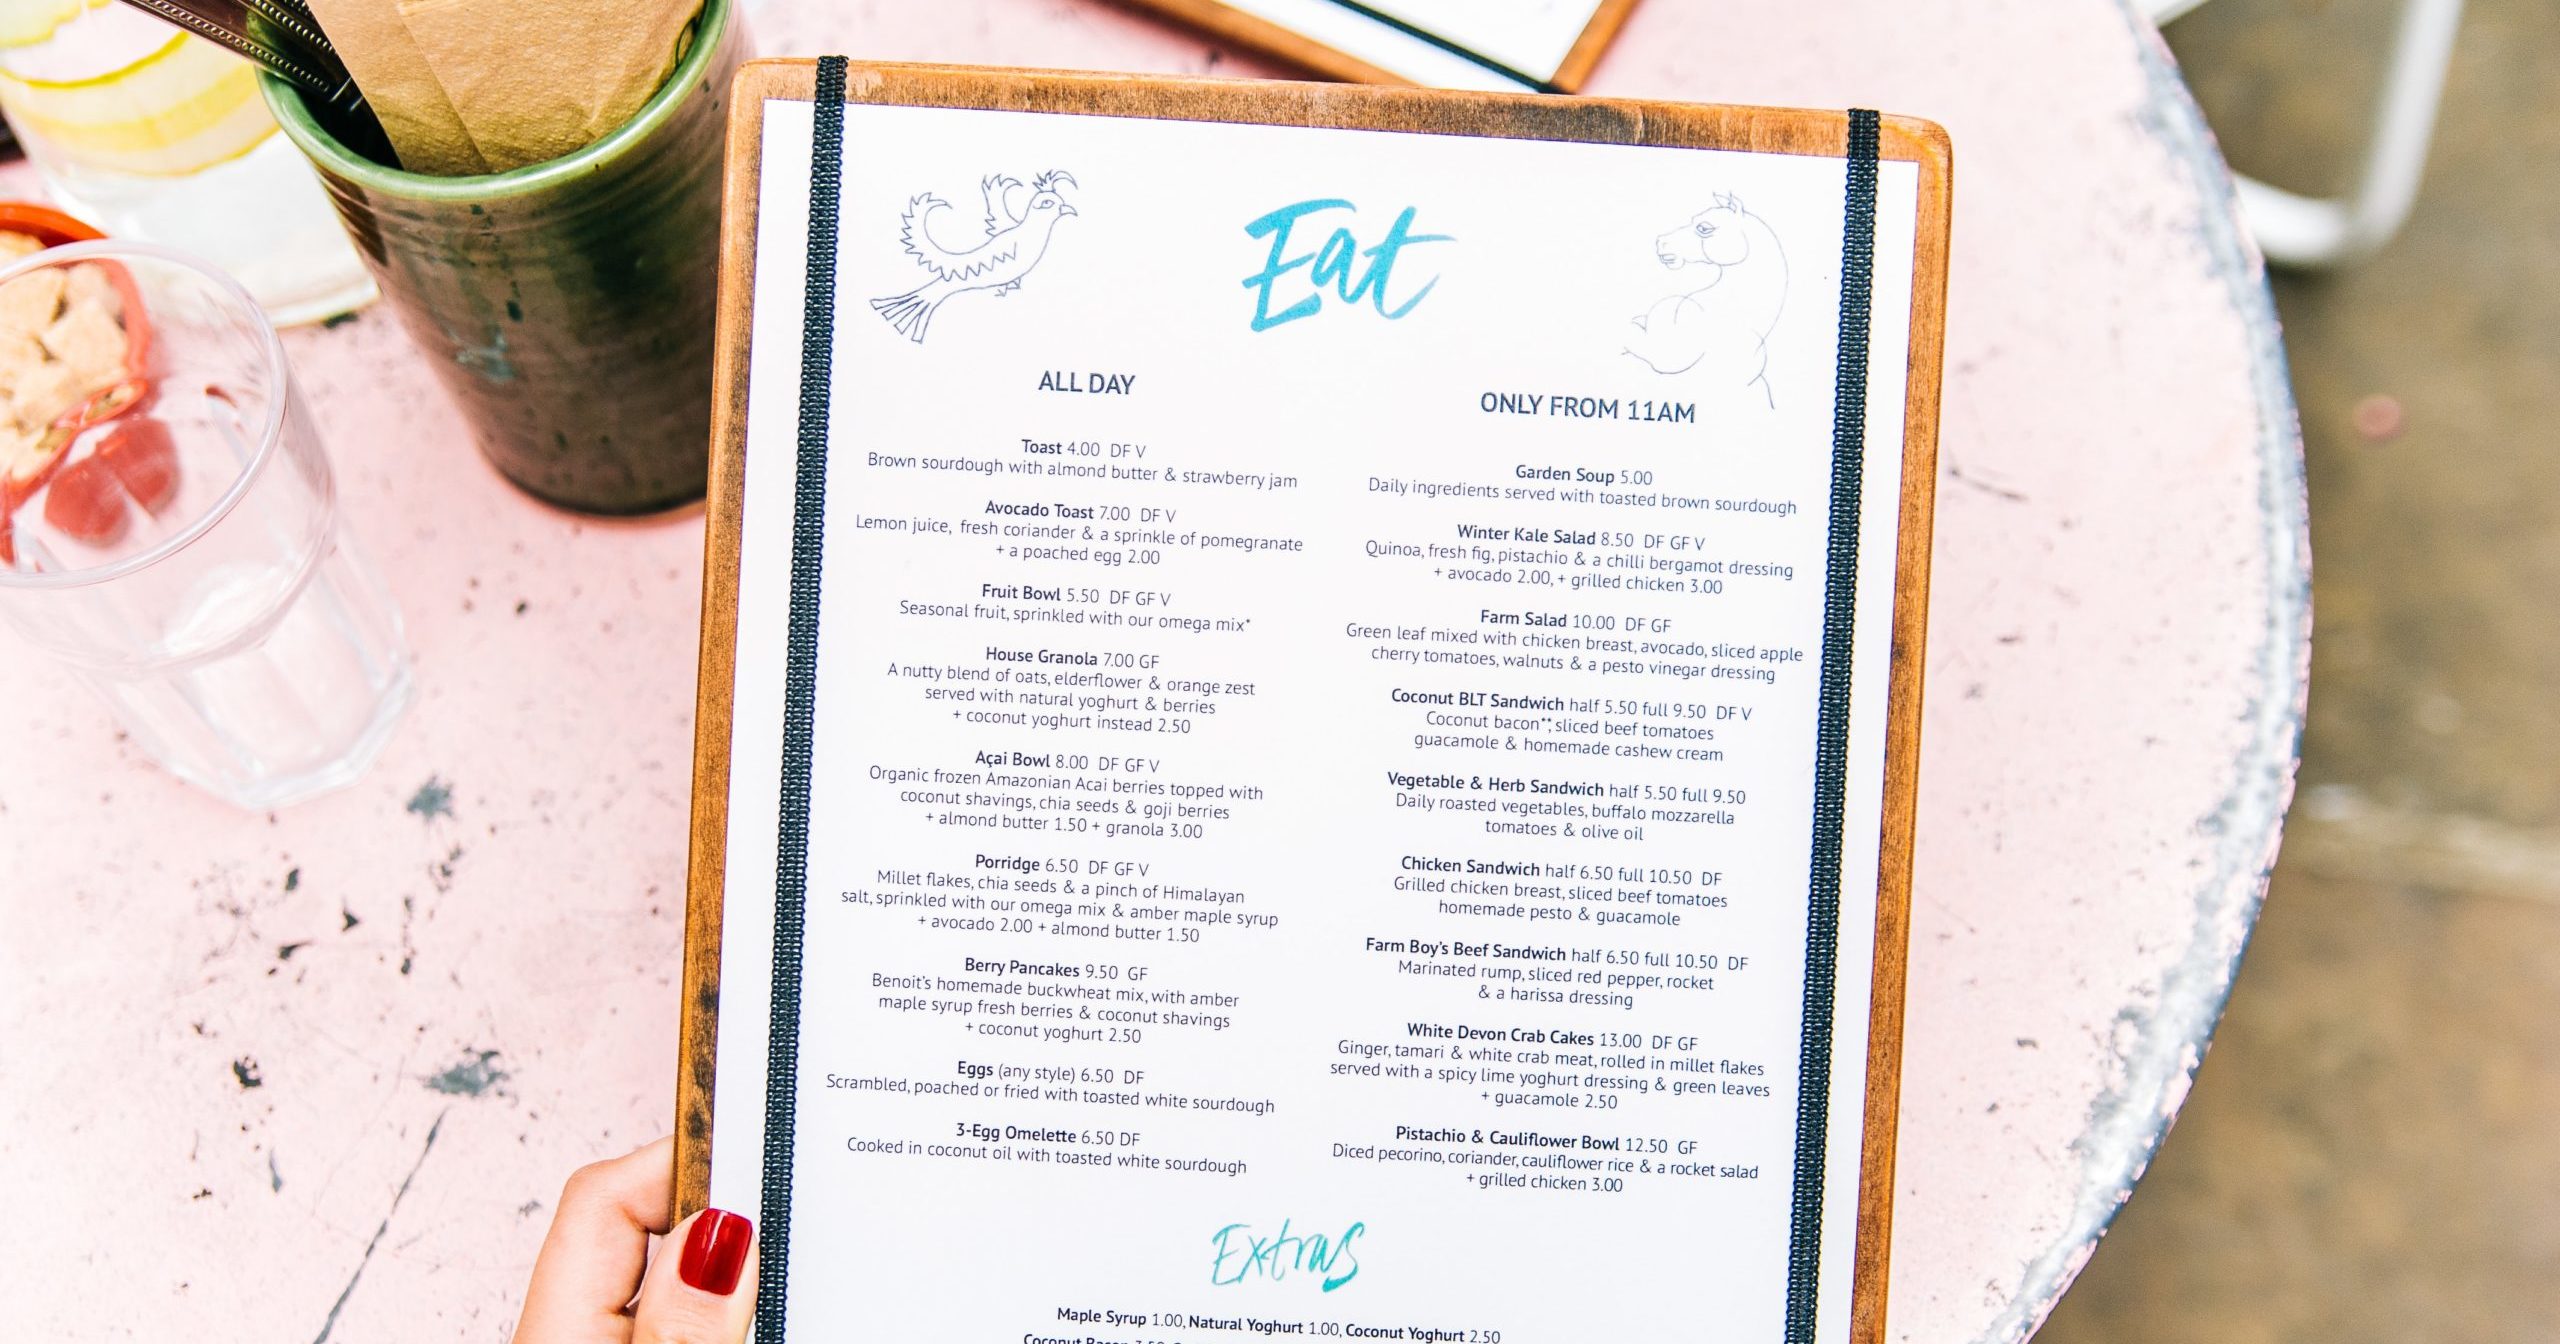 Eat
ALL DAY
Toast 4.00 DF V
Brown sourdough with almond butter & strawberry jam
Avocado Toast 7.00 DF V
Lemon juice, fresh coriander & a sprinkle of pomegranate
+ a poached egg 2.00
Fruit Bowl 5.50 DF GF V
Seasonal fruit, sprinkled with our omega mix*
House Granola 7.00 GF
A nutty blend of oats, elderflower & orange zest
served with natural yoghurt & berries
+ coconut yoghurt instead 2.50
Açai Bowl 8.00 DF GF V
Organic frozen Amazonian Acai berries topped with
coconut shavings, chia seeds & goji berries
+ almond butter 1.50 + granola 3.00
Porridge 6.50 DF GF V
Millet flakes, chia seeds & a pinch of Himalayan
salt, sprinkled with our omega mix & amber maple syrup
+ avocado 2.00 + almond butter 1.50
Berry Pancakes 9.50 GF
Benoit's homemade buckwheat mix, with amber
maple syrup fresh berries & coconut shavings
+ coconut yoghurt 2.50
Eggs (any style) 6.50 DF
Scrambled, poached or fried with toasted white sourdough
3-Egg Omelette 6.50 DF
Cooked in coconut oil with toasted white sourdough
ONLY FROM 11AM
Garden Soup 5.00
Daily ingredients served with toasted brown sourdough
Winter Kale Salad 8.50 DF GF V
Quinoa, fresh fig, pistachio & a chilli bergamot dressing
+ avocado 2.00, + grilled chicken 3.00
Farm Salad 10.00 DF GF
Green leaf mixed with chicken breast, avocado, sliced apple
cherry tomatoes, walnuts & a pesto vinegar dressing
Coconut BLT Sandwich half 5.50 full 9.50 DF V
Coconut bacon**, sliced beef tomatoes
guacamole & homemade cashew cream
Vegetable & Herb Sandwich half 5.50 full 9.50
Daily roasted vegetables, buffalo mozzarella
tomatoes & olive oil
Chicken Sandwich half 6.50 full 10.50 DF
Grilled chicken breast, sliced beef tomatoes
homemade pesto & guacamole
Farm Boy's Beef Sandwich half 6.50 full 10.50 DF
Marinated rump, sliced red pepper, rocket
& a harissa dressing
White Devon Crab Cakes 13.00 DF GF
Ginger, tamari & white crab meat, rolled in millet flakes
served with a spicy lime yoghurt dressing & green leaves
+ guacamole 2.50
Pistachio & Cauliflower Bowl 12.50 GF
Diced pecorino, coriander, cauliflower rice & a rocket salad
+ grilled chicken 3.00
Extras
Maple Syrup 1.00, Natural Yoghurt 1.00, Coconut Yoghurt 2.50
Coconut Bacon